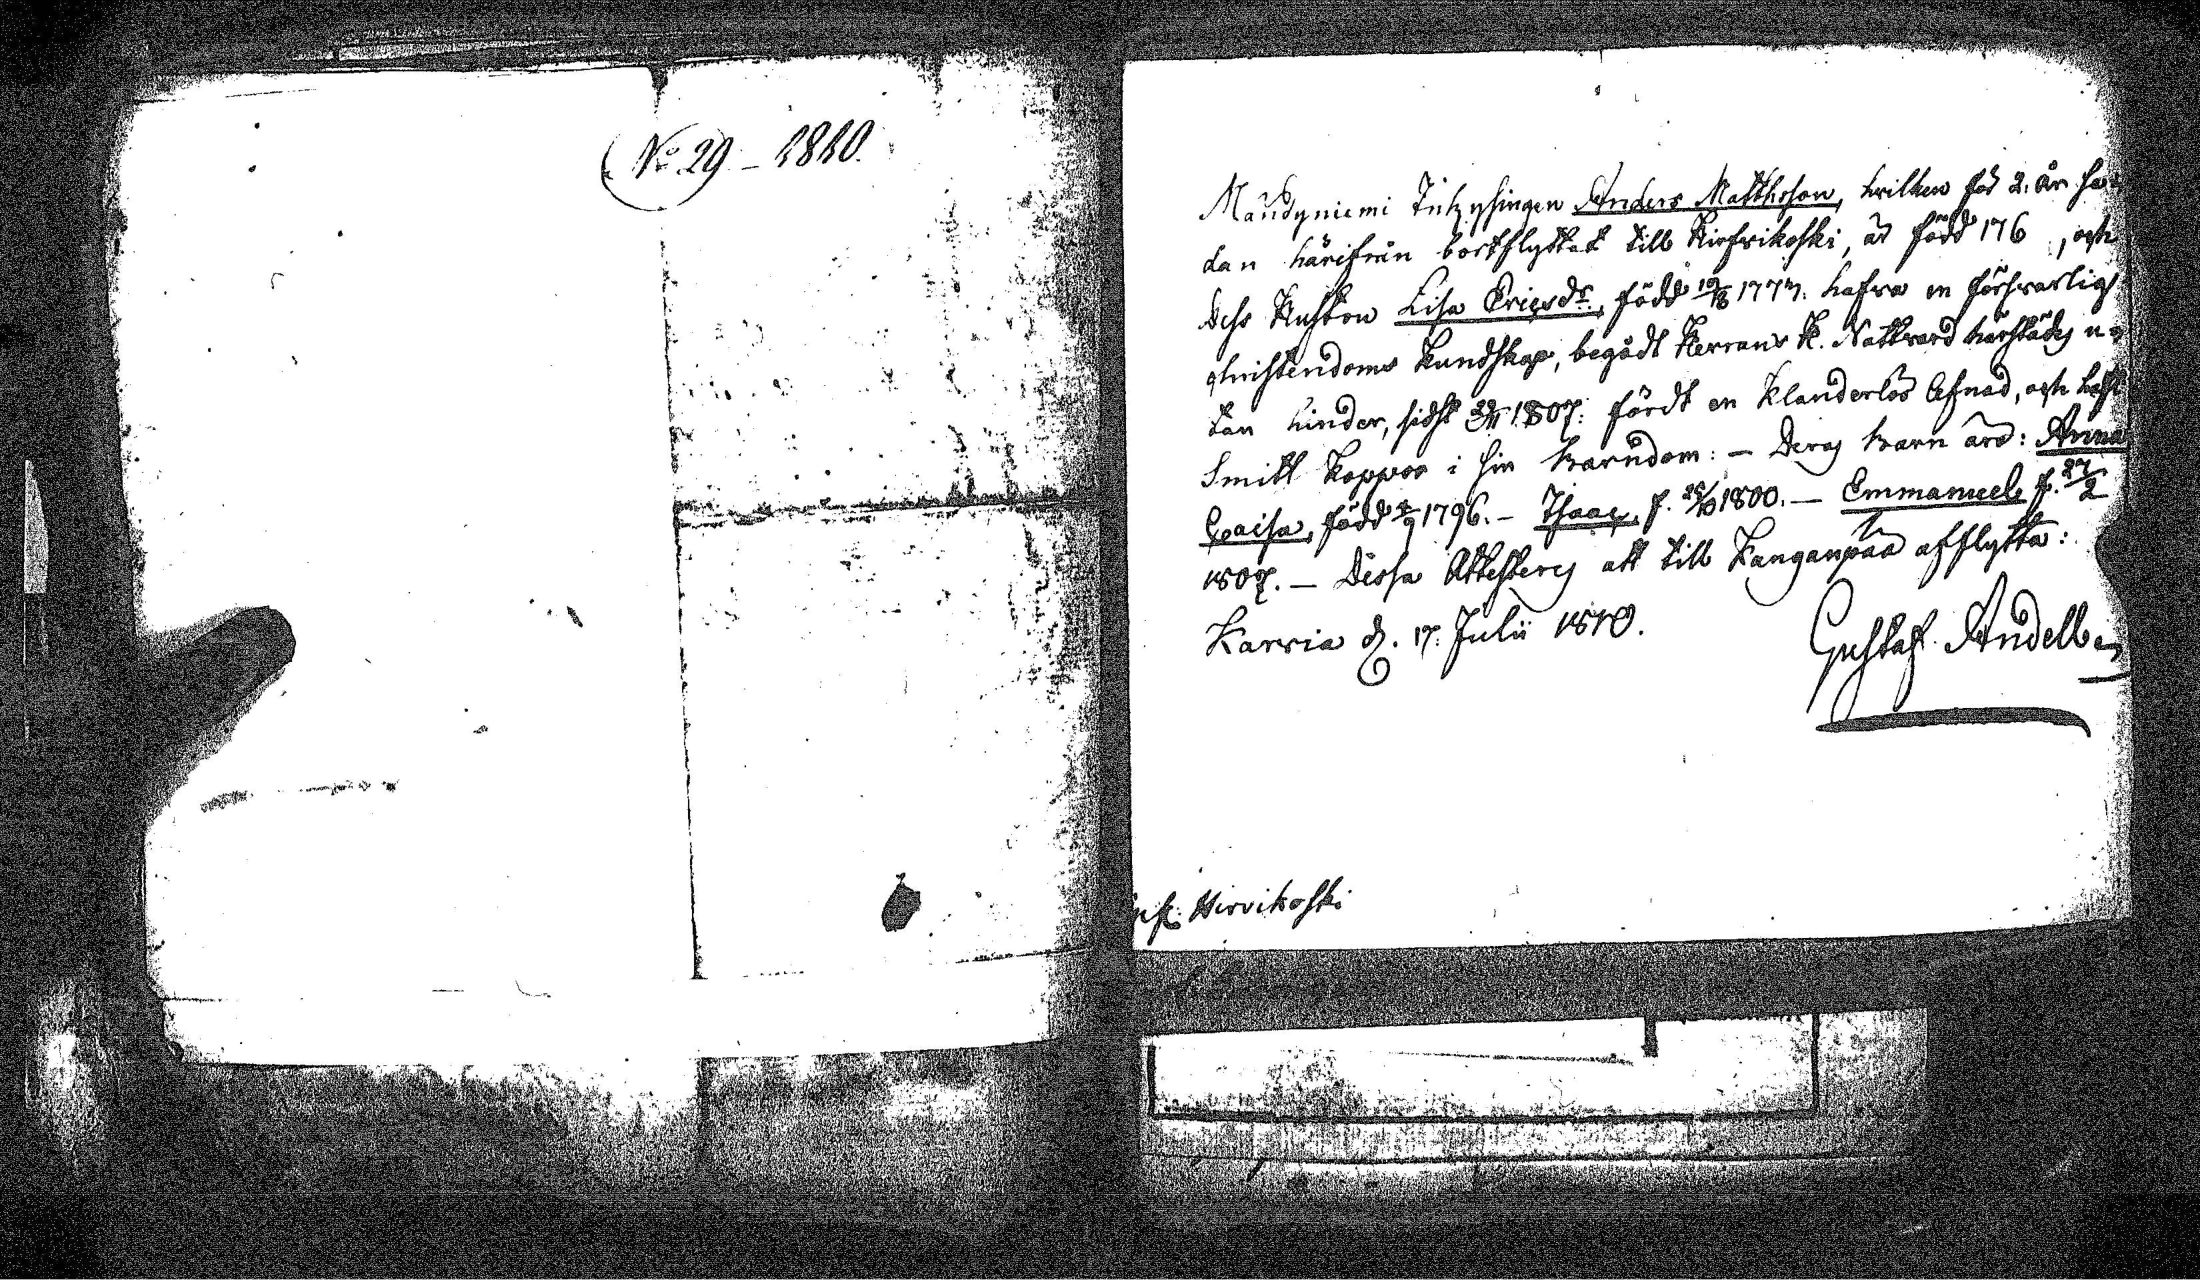 No. 29 – 1810.
Maudyniemi Inhysingen Anders Matthsson, hvilken för 2. år se-
dan härifrån bortflyttat till Hirfvikoski, är född 176 , och
Dess Hustru Lisa Ericsdr., född 1777. hafva en försvarlig
christendoms kundskap, begådt Herrans H. Nattvard härstädes u-
tan hinder, sidst 1807. fördt en klanderlös lefnad, och haft
Smitt koppor i sin barndom: – Deras barn äro: Anna
Caisa, född 1796. – Isaac, f. 1800. – Emmanuel f. 27/2
1807. – Dessa Attesteras att till Kanganpää afflytta:
Karvia d. 17. Julii 1810.
Gustaf Andell
Hirvikoski